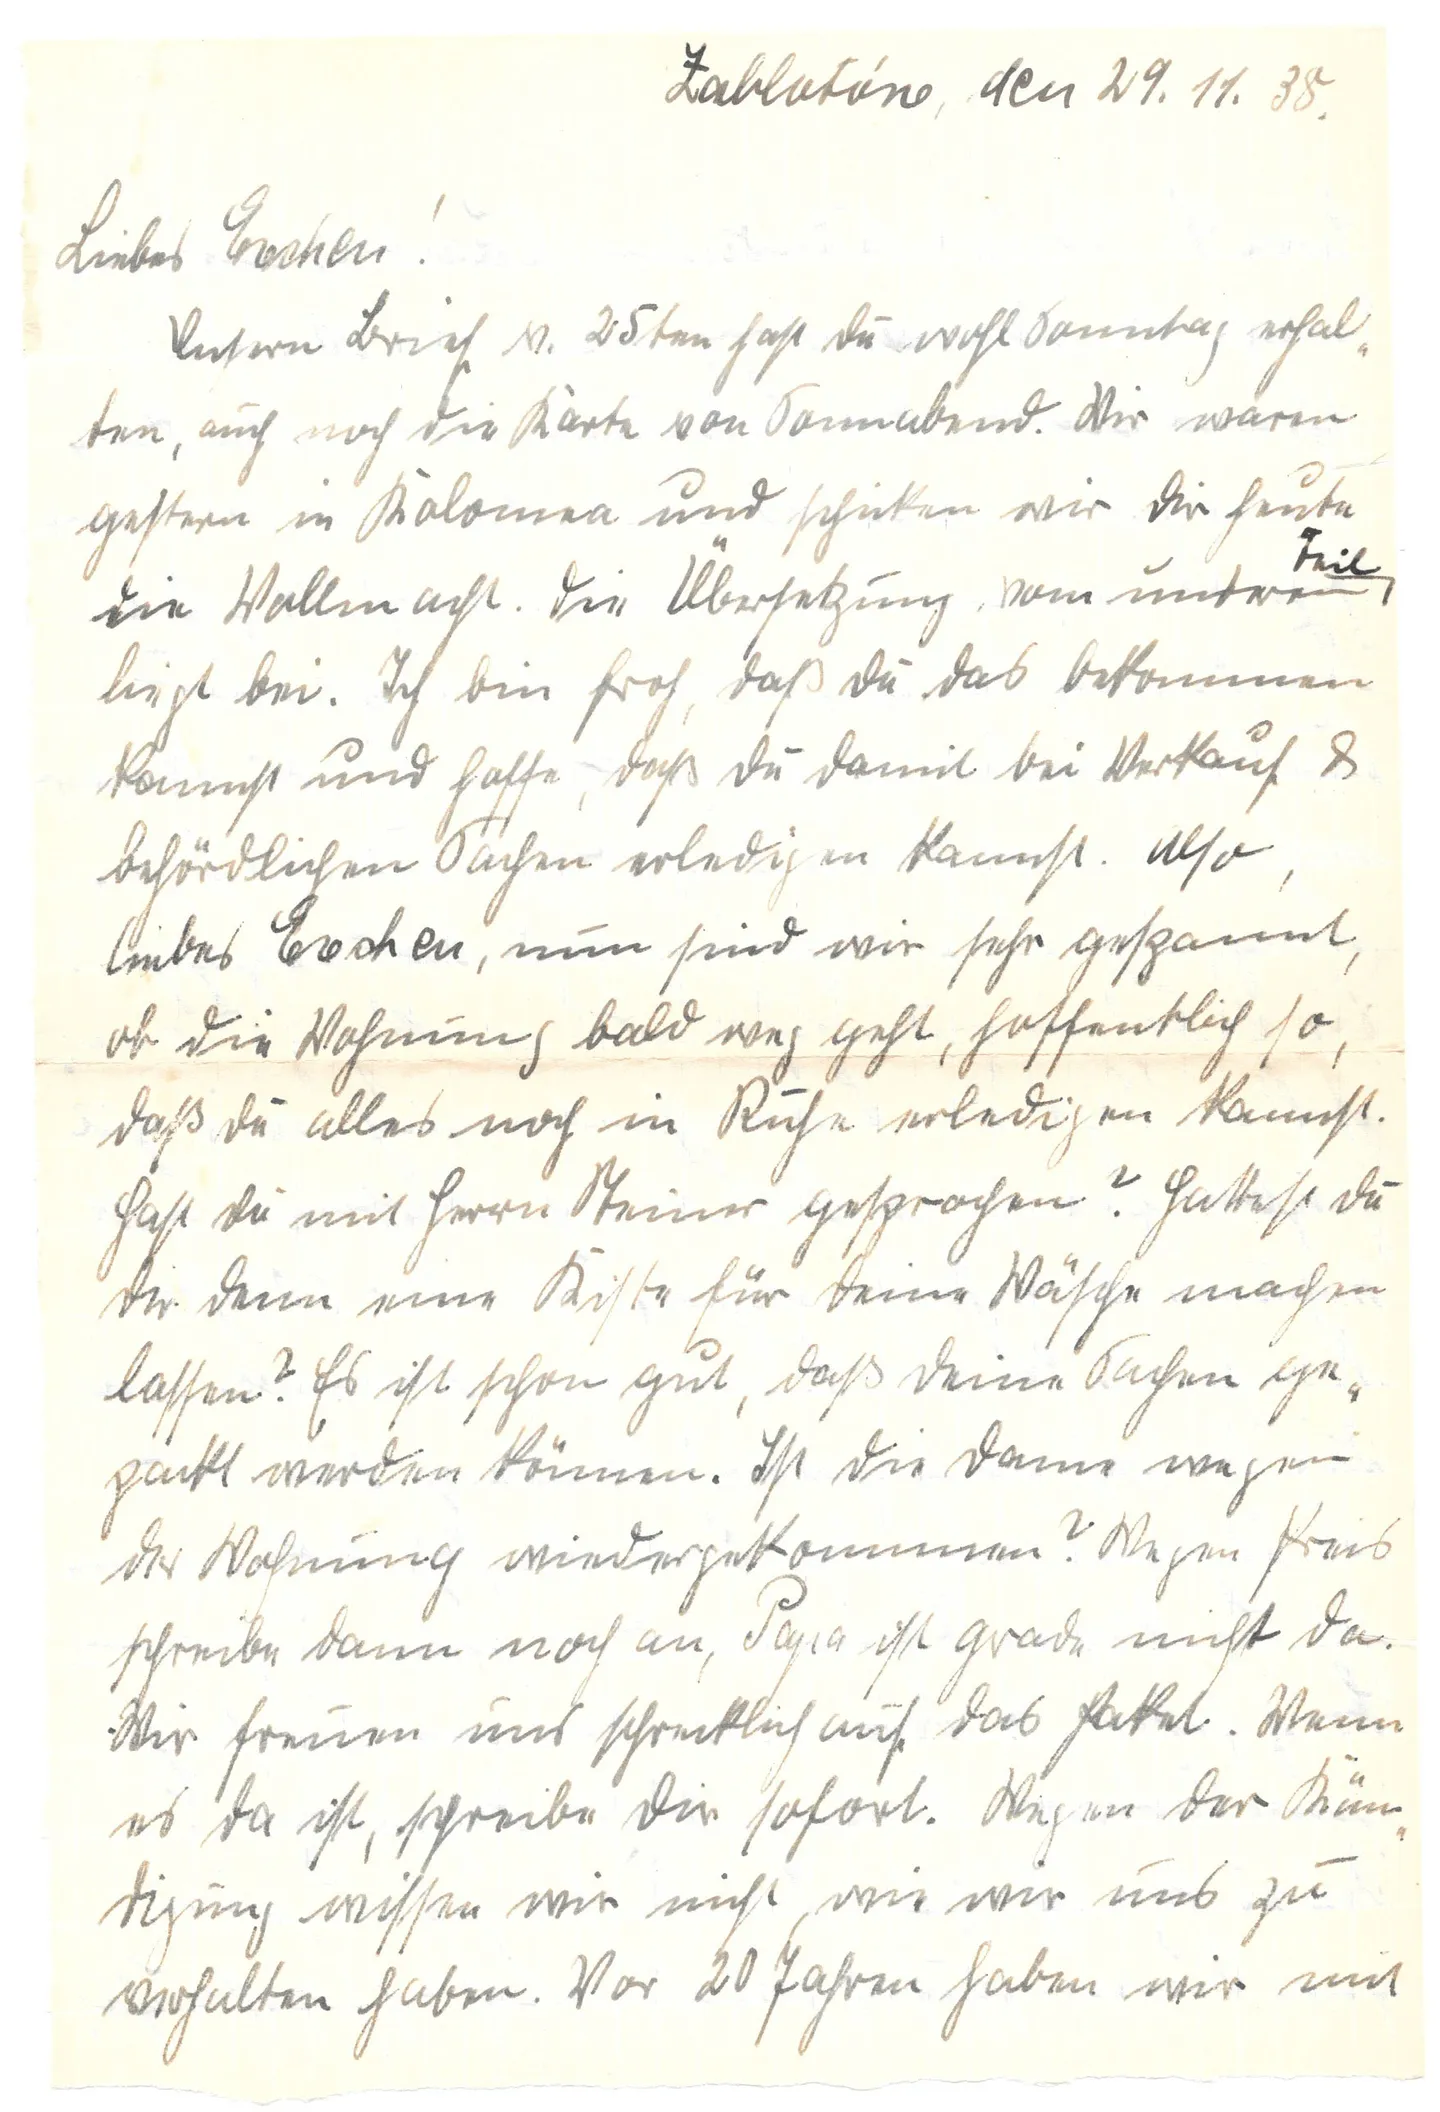 Zablotóno, den 29. 11. 38.
Liebes Evchen!
Unsern Brief v. 25ten hast du wohl Sonntag erhal-
ten, auch noch die Karte von Sonnabend. Wir waren
gestern in Kolomea und schicken wir dir heute
die Vollmacht. Die Übersetzung vom unteren Teil
liegt bei. Ich bin froh, daß du das bekommen
kannst und hoffe, daß du damit bei Verkauf &
behördlichen Sachen erledigen kannst. Also,
liebes Evchen, nun sind wir sehr gespannt,
ob die Wohnung bald weg geht, hoffentlich so,
daß du alles noch in Ruhe erledigen kannst.
Hast du mit Herrn Steiner gesprochen? Hattest du
dir denn eine Kiste für deine Wäsche machen
lassen? Es ist schon gut, daß deine Sachen ge-
packt werden können. Ist die Dame wegen
der Wohnung wiedergekommen? Wegen Preis
schreibe dann noch an, Papa ist grade nicht da.
Wir freuen uns schrecklich auf das Paket. Wenn
es da ist, schreibe dir sofort. Wegen der Kün-
digung wissen wir nicht, wie wir uns zu
verhalten haben. Vor 20 Jahren haben wir mit